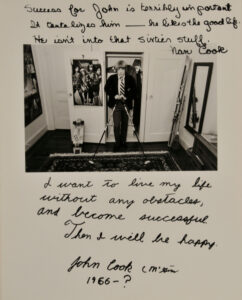 Success for John is terribly important
It tantalizes him — he likes the good life.
He isn't into that sixties stuff.
Nan Cook
I want to live my life
without any obstacles,
and become successful
Then I will be happy.
John Cook
1966-?